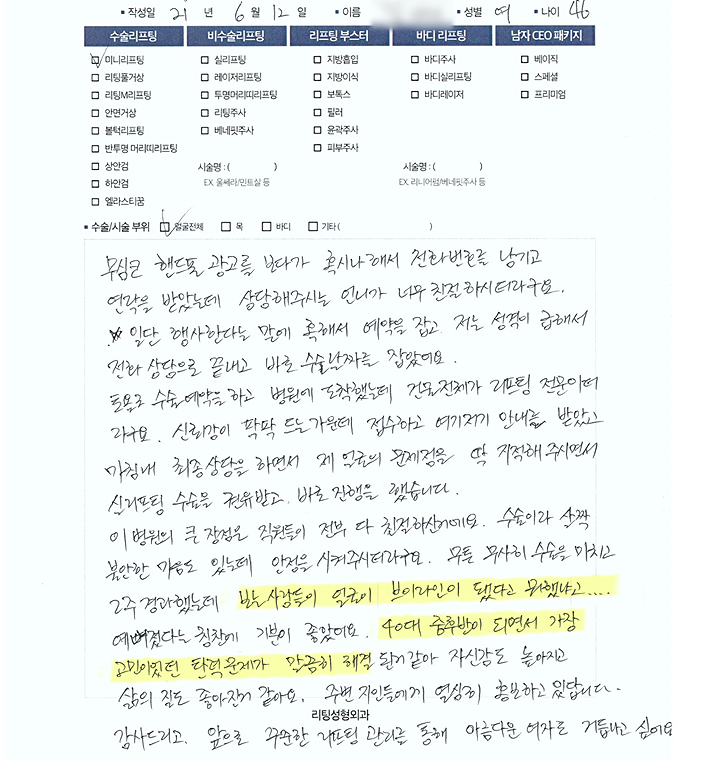 ▪ 작성일 21 년 6 월 12 일 ▪ 이름 ▪ 성별 여 ▪ 나이 46
수술리프팅 비수술리프팅 리프팅 부스터 바디 리프팅 남자 CEO 패키지
미니리프팅 실리프팅 지방흡입 바디주사 베이직
리팅풀거상 레이저리프팅 지방이식 바디실리프팅 스페셜
리팅M리프팅 투명머리띠리프팅 보톡스 바디레이저 프리미엄
안면거상 리팅주사 필러
볼턱리프팅 베네핏주사 윤곽주사
반투명 머리띠리프팅 피부주사
상안검 시술명 : ( ) 시술명 : ( )
하안검 EX. 울쎄라/민트실 등 EX. 리니어펌/베네핏주사 등
엘라스티꿈
▪ 수술/시술 부위 얼굴전체 목 바디 기타 ( )
무심코 핸드폰 광고를 보다가 혹시나해서 전화번호를 남기고
연락을 받았는데 상담해주시는 언니가 너무 친절하시더라구요.
일단 행사한다는 말에 혹해서 예약을 잡고 저는 성격이 급해서
전화 상담으로 끝내고 바로 수술날짜를 잡았어요.
토요일로 수술예약을 하고 병원에 도착했는데 건물전체가 리프팅 전문이더
라구요. 신뢰감이 팍팍 드는가운데 접수하고 여기저기 안내를 받았고
마침내 최종상담을 하면서 제 얼굴의 문제점을 딱 지적해 주시면서
실리프팅 수술을 권유받고. 바로 진행을 했습니다.
이 병원의 큰 장점은 직원들이 전부 다 친절하신거예요. 수술이라 살짝
불안한 마음도 있는데 안정을 시켜주시더라구요. 무튼 무사히 수술을 마치고
2주 경과했는데 보는사람들이 얼굴이 브이라인이 됐다고 뭐했냐고....
예뻐졌다는 칭찬에 기분이 좋았어요. 40대 중후반이 되면서 가장
고민이었던 탄력문제가 말끔히 해결 된거같아 자신감도 높아지고
삶의 질도 좋아진거 같아요. 주변 지인들에게 열심히 홍보하고 있답니다.
리팅성형외과
감사드리고. 앞으로 꾸준한 리프팅 관리를 통해 아름다운 여자로 거듭나고 싶어요